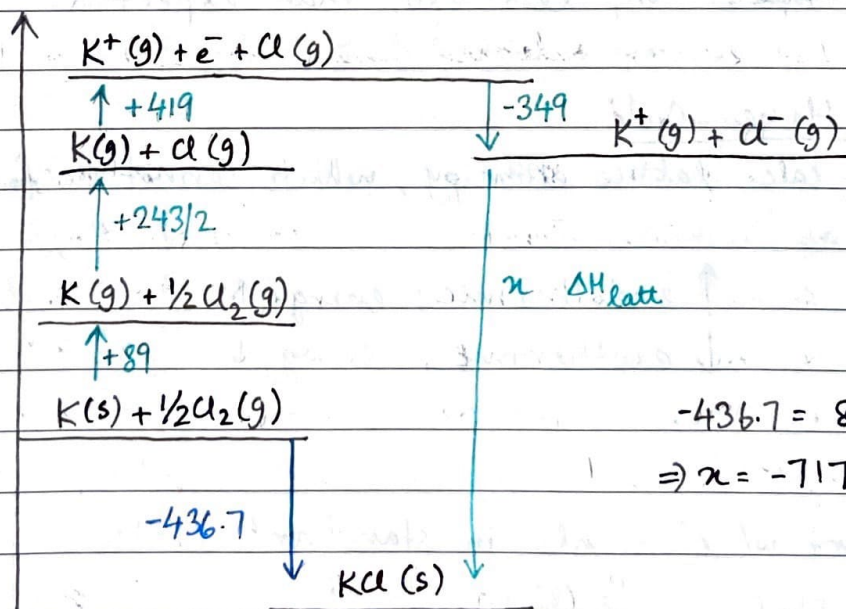 K⁺(g) + e⁻ + Cl(g)
+419
-349
K⁺(g) + Cl⁻(g)
K(g) + Cl(g)
+243/2
K(g) + ½Cl₂(g)
x ΔH latt
+89
K(s) + ½Cl₂(g)
-436.7 = 8
⇒ x = -717
-436.7
KCl (s)